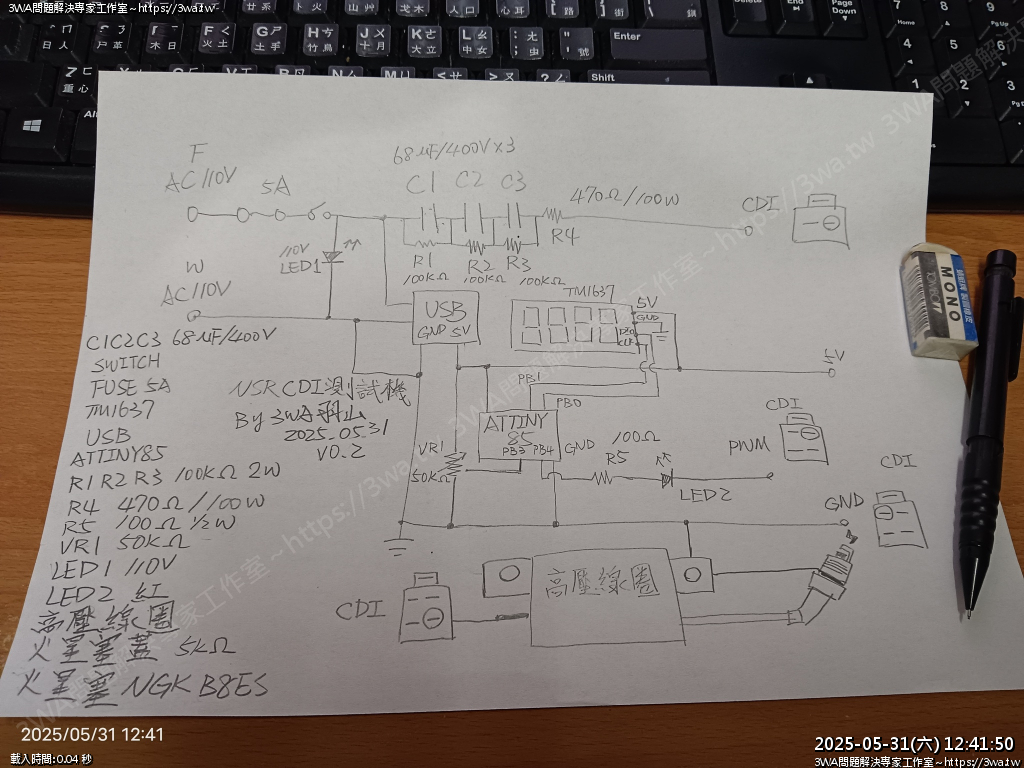 3WA問題解決專家工作室~https://3wa.tw
Enter
Shift
68μF/400V×3
F
AC 110V
5A
C1 C2 C3
470Ω/100W
CDI
R4
110V
LED1
R1 R2 R3
100KΩ 100KΩ 100KΩ
W
AC 110V
USB
GND 5V
TM1637
5V
GND
DIO
CLK
5V
C1C2C3 68μF/400V
SWITCH
FUSE 5A
TM1637
USB
ATTINY85
R1 R2 R3 100KΩ 2W
R4 470Ω/100W
R5 100Ω 1/2W
VR1 50KΩ
LED1 110V
LED2 紅
高壓線圈
火星塞蓋 5kΩ
火星塞 NGK B8ES
NSR CDI測試機
By 3WA羽山
2025.05.31
V0.2
PB1
PB0
ATTINY
85
PB3 PB4
GND
VR1
50KΩ
100Ω
R5
LED2
PWM
CDI
CDI
GND
高壓線圈
CDI
MONO
Tombow
2025/05/31 12:41
載入時間:0.04 秒
2025-05-31(六) 12:41:50
3WA問題解決專家工作室~https://3wa.tw